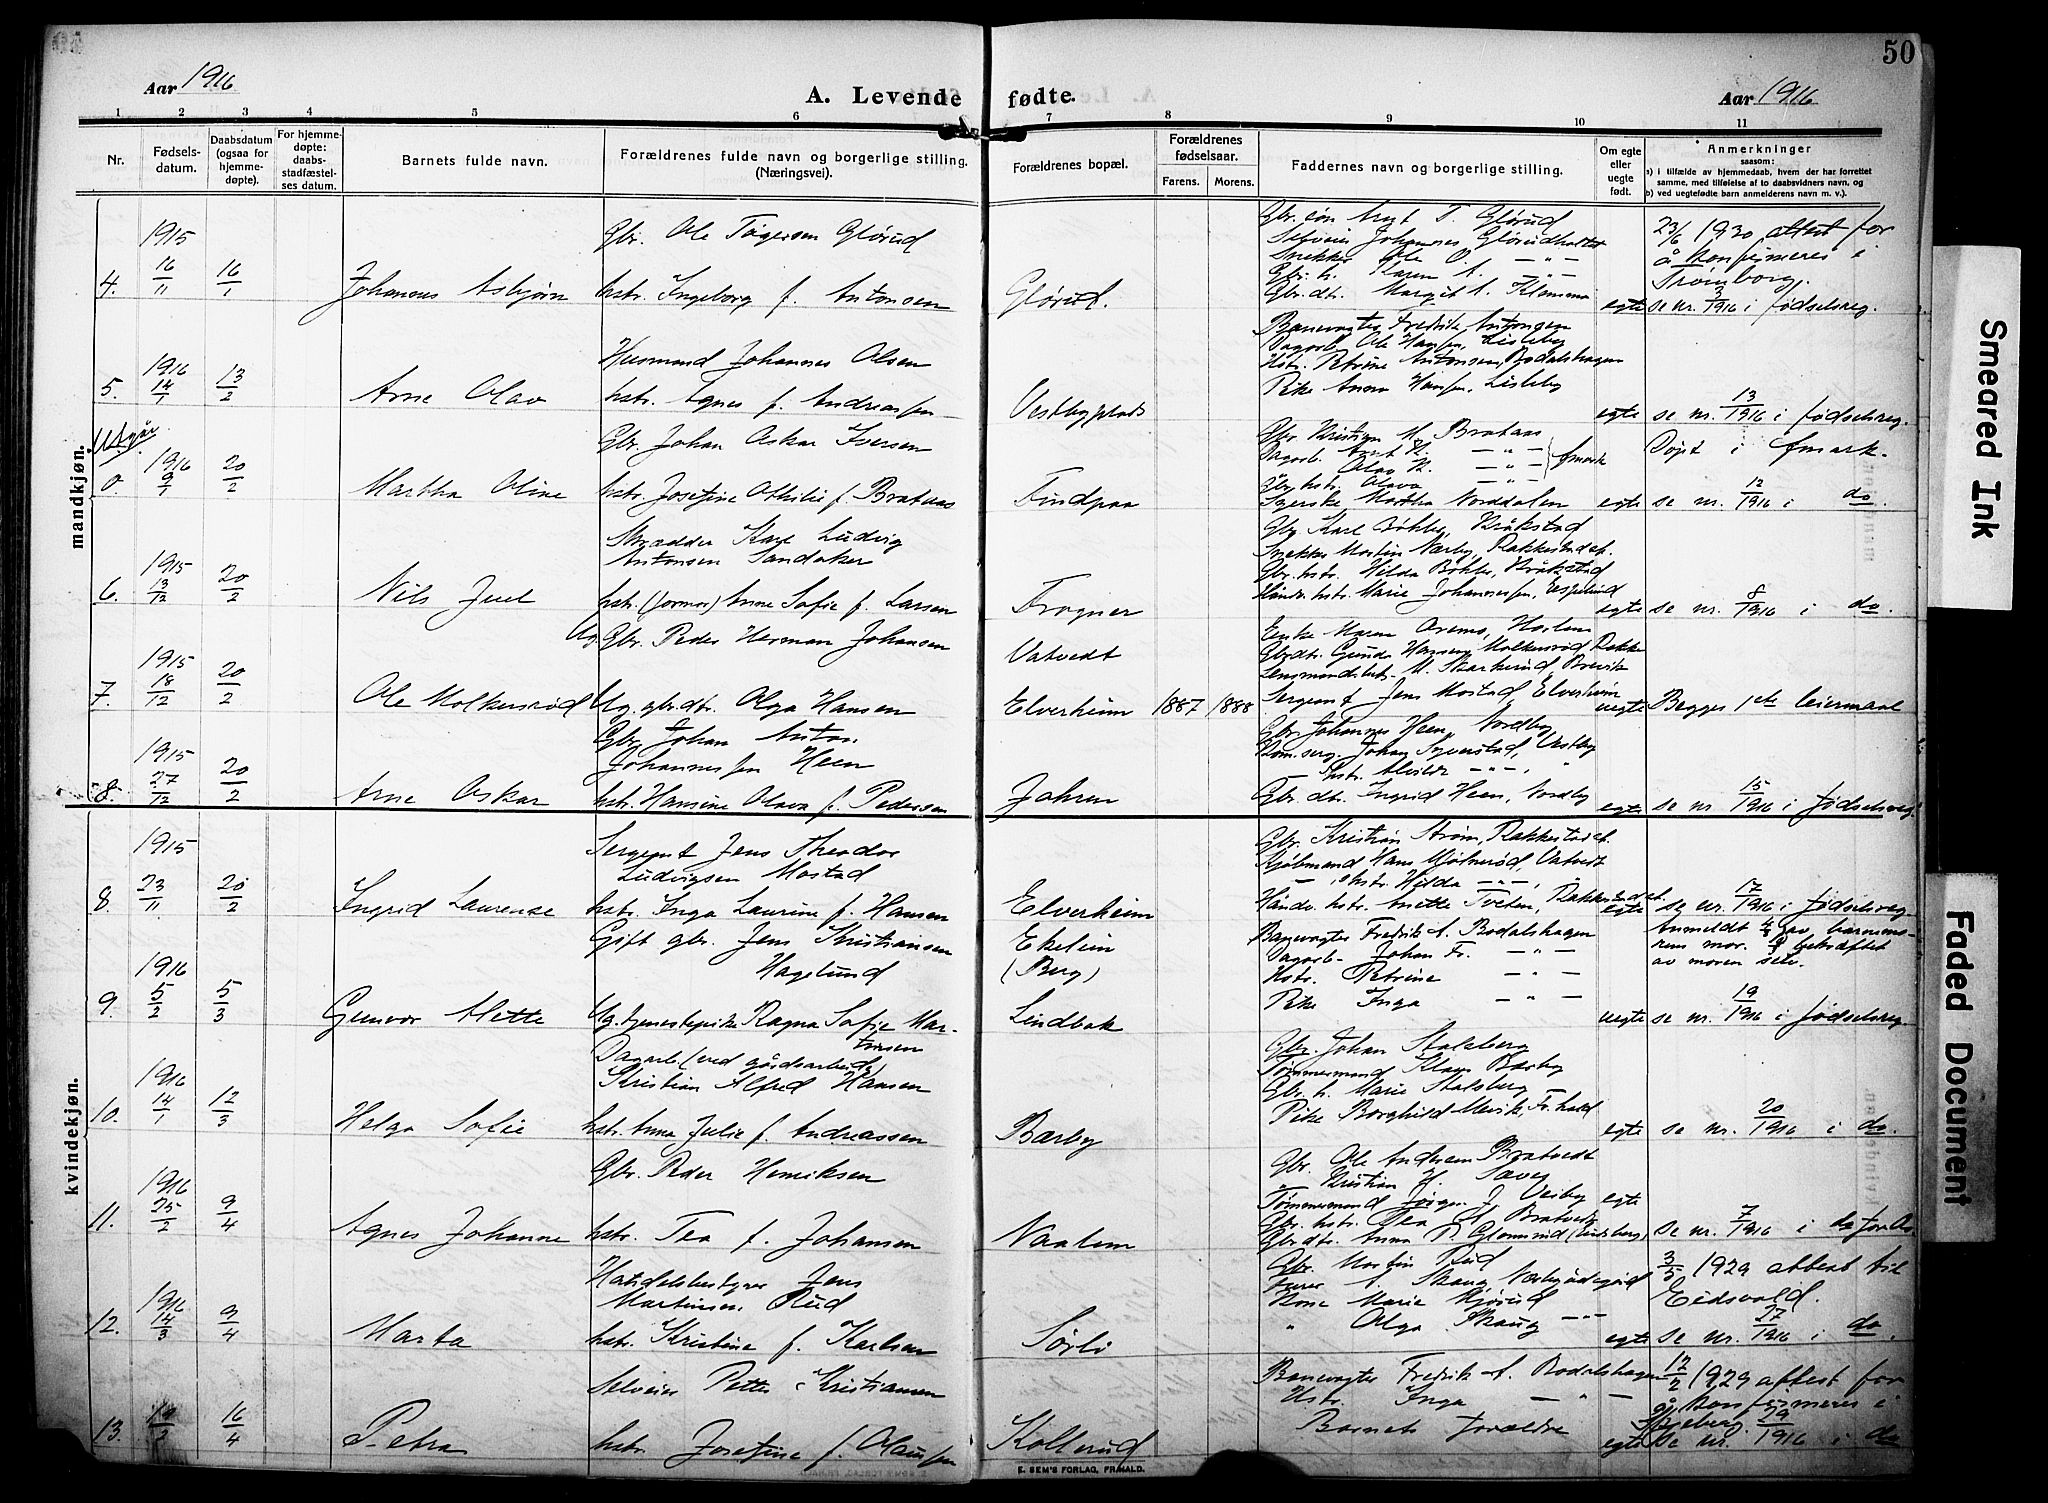 50
Aar 1916
A. Levende fødte.
Aar 1916
1 2 3 4 5 6 7 8 9 10 11
Nr.
Fødselsdatum.
Daabsdatum (ogsaa for hjemmedøpte).
For hjemmedøpte: daabsstadfæstelses datum.
Barnets fulde navn.
Forældrenes fulde navn og borgerlige stilling. (Næringsvei).
Forældrenes bopæl.
Forældrenes fødselsaar.
Farens. Morens.
Faddernes navn og borgerlige stilling.
Om egte eller uegte født.
Anmerkninger
saasom:
a) i tilfælde av hjemmedaab, hvem der har forrettet
samme, med tilføielse af to daabsvidners navn, og
b) ved uegtefødte barn anmelderens navn m. v.).
mandkjøn.
1915
Gbr. Ole Tøgersen Glørud
Gbr. søn Arnt T. Glørud
Selveier Johannes Glørudholtet
Snekker Ole O. — " —
Gbr. h. Karen A. — " —
Gbr. dtr. Margit A.
23/6 1930 attest for
å konfirmeres i
Trømborg.
4. 16/11 16/1 Johannes Asbjørn hstr. Ingeborg f. Antonsen Glørud. egte se nr. 3/1916 i fødselsreg.
1916
Husmand Johannes Olsen
Banevagter Fredrik Antonsen
Dagarb. Ole Hansen, Lisleby
Hstr. Petrine Antonsen, Bodalshagen
Pike Anna Hansen, Lisleby
5. 14/1 13/2 Arne Olav hstr. Agnes f. Andreassen Vestbyplads egte se nr. 13/1916 i fødselsreg.
Utgår
1916
Gbr. Johan Oskar Iversen
Gbr. Kristian M. Brataas
Dagarb. Arnt K. — " —
Olav K. — " —
Gbr. hstr. Olava
Syerske Martha Norddalen
Døpt i Ømark.
0. 9/1 20/2 Martha Oline hstr. Josefine Othilie f. Brataas Findpaa egte se nr. 12/1916 i do.
1915
Skrædder Karl Ludvig
Antonsen Sandaker
Gbr. Karl Bøhler, Kråkstad
Snekker Martin Nærby, Rakkestadet.
Gbr. hstr. Hilda Bøhler, Kråkstad
Håndv. hstr. Marie Johannessen, Espelund
6. 13/12 20/2 Nils Juel hstr. (Jormor) Anne Sofie f. Larsen Frogner egte se nr. 8/1916 i do.
1915
Ug. Gbr. Peder Herman Johansen
Vatvedt
Enke Maren Aremo,
Gbrdtr. Gunda Hansen, Molkersrød, Rakke
Lensmandsbetj. M. Skarkerud, Brevik
Sergeant Jens Mostad, Elverheim
7. 18/12 20/2 Ole Molkersrød Ug. gbr.dtr. Olga Hansen Elverheim 1887 1888 uegte Begges 1ste leiermaal
1915
Gbr. Johan Anton
Johannessen Heen
Gbr. Johannes Heen, Nordby
Kom.serg. Johan Syverstad, Vestby
— hstr. Alvilde — " —
Gbr. dtr. Ingrid Heen, Nordby
8. 27/12 20/2 Arne Oskar hstr. Hansine Olava f. Pedersen Jahren egte se nr. 15/1916 i fødselsreg.
kvindekjøn.
1915
Sergeant Jens Theodor
Ludvigsen Mostad
Gbr. Kristian Strøm, Rakkestadet.
Kjøbmand Hans Mjølnerød, Vatvedt
— hstr. Hilda — " —
Håndv. hstr. Anette Tveten, Rakkestadet.
8. 23/11 20/2 Ingrid Laurense hstr. Inga Laurine f. Hansen Elverheim egte se nr. 17/1916 i fødselsreg.
1916
Gift gbr. Jens Kristiansen
Hagelund
Ekelien
(Berg)
Banevagter Fredrik A. Bodalshagen
Dagarb. Johan Fr. — " —
Hstr. Petrine — " —
Pike Inga — " —
Anmeldt av barnemorens
mor. bekræftet
av moren selv.
9. 5/2 5/3 Gunvor Alette Ug. tjenestepike Ragna Sofie Martinsen Lindbak uegte se nr. 19/1916 i fødselsreg.
1916
Dagarb. (ved gårdsarbeide)
Kristian Alfred Hansen
Gbr. Johan Stalsberg
Tømmermand Klaus Bærby
Gbr. h. Marie Stalsberg
Pike Borghild Mevik, Fr.hald
10. 14/1 12/3 Helga Sofie hstr. Anna Julie f. Andreassen Bærby egte se nr. 20/1916 i do.
1916
Gbr. Peder Henriksen
Gbr. Ole Andersen Bratvedt
" Kristian H. Sæves
Tømmermand Jørgen J. Veiby
Gbr. hstr. Tea Bratvedt
Gbr. dtr. Anna P. Glomsrud (Lindberg)
11. 25/2 9/4 Agnes Johanne hstr. Tea f. Johansen Naalum egte se nr. 7/1916 i do for Os.
1916
Handelsbestyrer Jens
Martinsen Rud
Gbr. Martin Rud
A. Skaug
Kone Marie Kjørud
" Olga Skaug — " —
3/5 1929 attest til
Eidsvold.
12. 14/3 9/4 Marta hstr. Kristine f. Karlsen Sørli egte se nr. 27/1916 i do.
Selveier Petter Kristiansen
Banevagter Fredrik A. Bodalshagen
Hstr. Inga — " —
Barnets forældre
12/2 1929 attest for
å konfirmeres i
Spydeberg
13. 16/4 Petra hstr. Josefine f. Olaussen Kollerud egte se nr. 19/1916 i do
E. SEM'S FORLAG, FR.HALD.
Smeared Ink
Faded Document